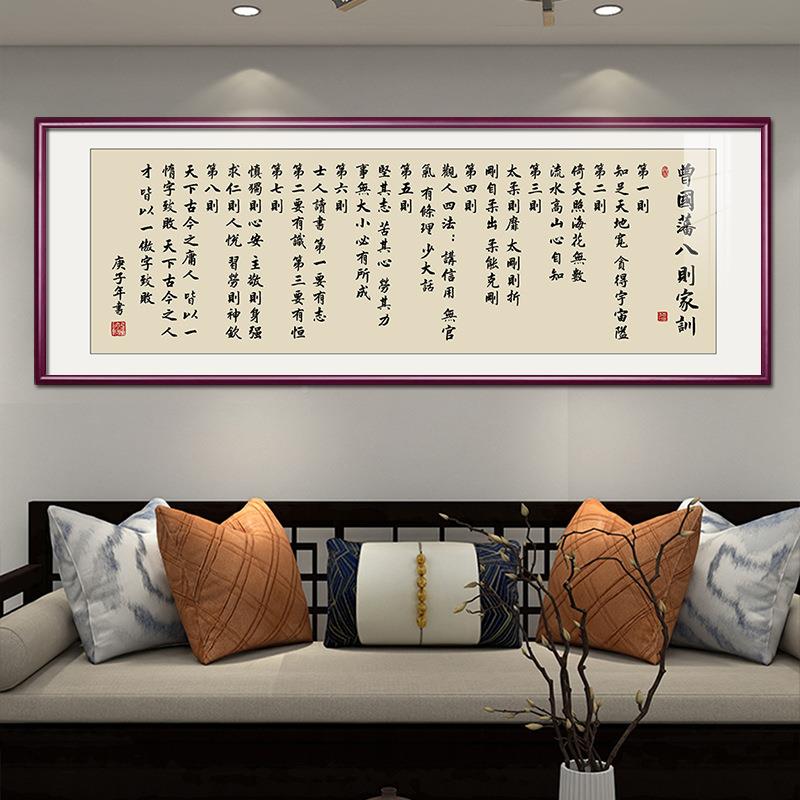 曾國藩八則家訓
第一則
知足天地寬 貪得宇宙隘
第二則
倚天照海花無數
流水高山心自知
第三則
太柔則靡 太剛則折
剛自柔出 柔能克剛
第四則
觀人四法：講信用 無官
氣 有條理 少大話
第五則
堅其志 苦其心 勞其力
事無大小必有所成
第六則
士人讀書 第一要有志
第二要有識 第三要有恒
第七則
慎獨則心安 主敬則身强
求仁則人悅 習勞則神欽
第八則
天下古今之庸人 皆以一
惰字致敗 天下古今之人
才 皆以一傲字致敗
庚子年書